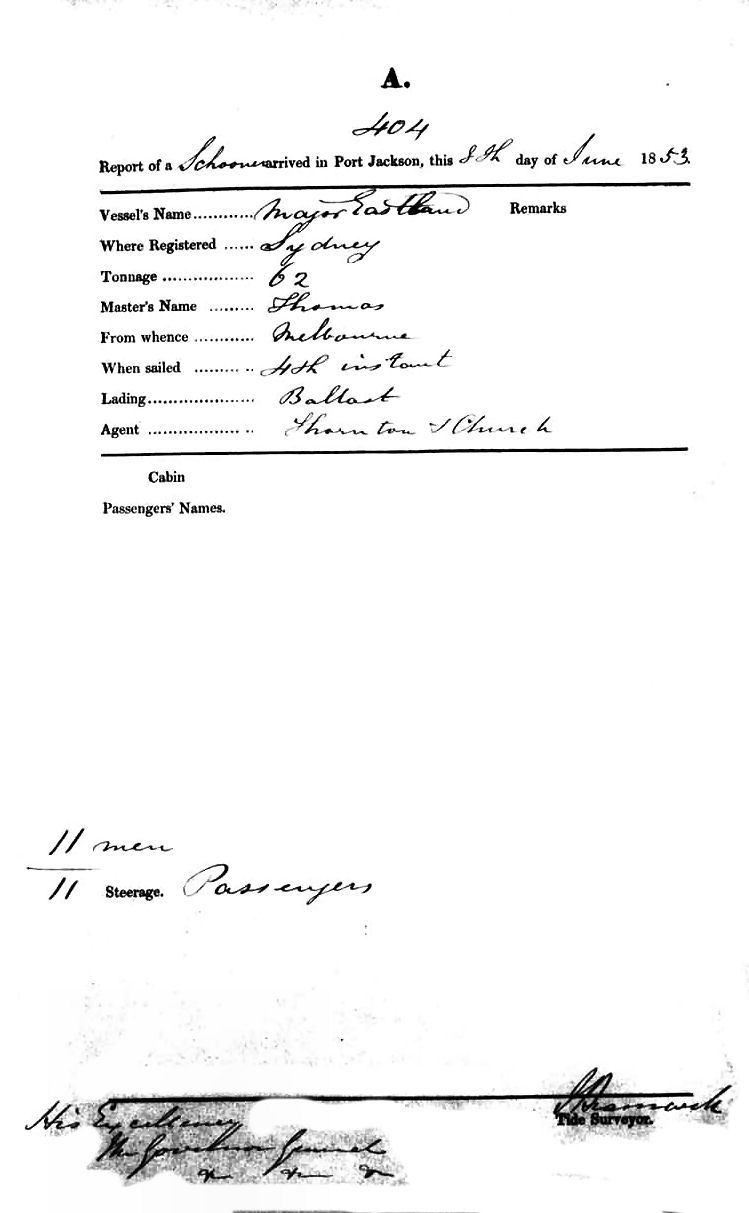 A.
404
Report of a Schooner arrived in Port Jackson, this 8th day of June 1853.
Vessel's Name............ Major Eastland Remarks
Where Registered ...... Sydney
Tonnage .................. 62
Master's Name ......... Thomas
From whence ............ Melbourne
When sailed ........... 4th instant
Lading..................... Ballast
Agent .................... Thornton & Church
Cabin
Passengers' Names.
11 men
11 Steerage. Passengers
His Excellency
Tide Surveyor.
The Governor General